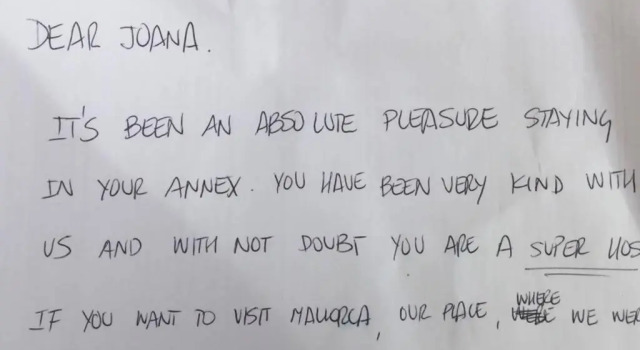 DEAR JOANA.
IT'S BEEN AN ABSOLUTE PLEASURE STAYING
IN YOUR ANNEX. YOU HAVE BEEN VERY KIND WITH
US AND WITH NOT DOUBT YOU ARE A SUPER HOS
IF YOU WANT TO VISIT MALLORCA, OUR PLACE, WHERE WE WER